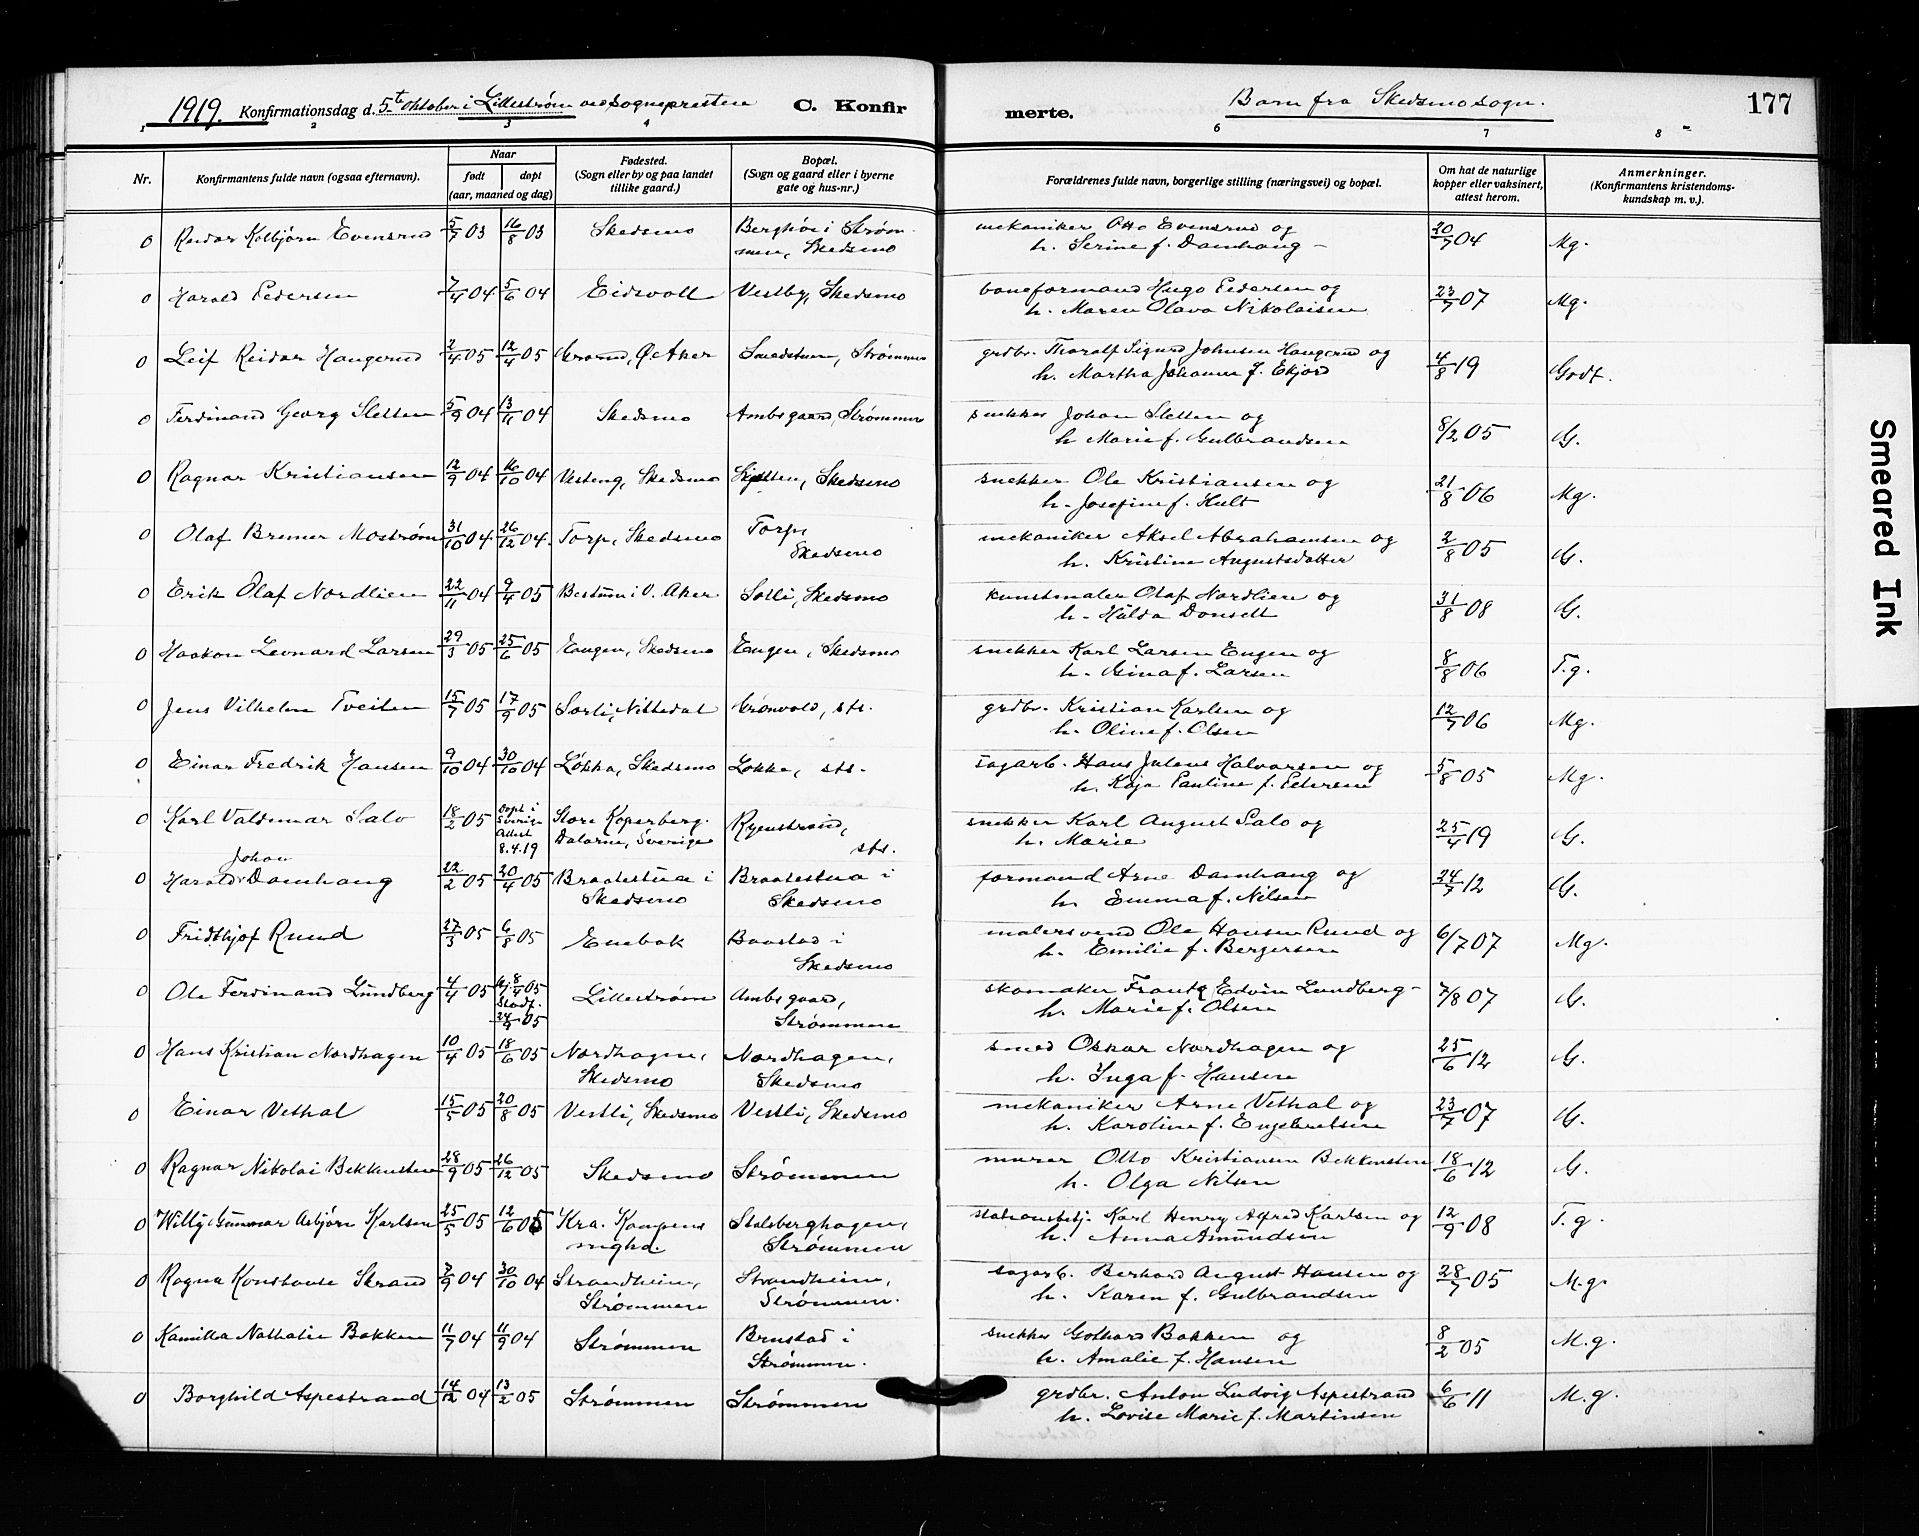 1919. Konfirmationsdag d. 5te Oktober i Lillestrøm ved sognepresten C. Konfir
merte. Barn fra Skedsmo sogn. 177
1 2 3 4 6 7 8
Nr.
Konfirmantens fulde navn (ogsaa efternavn).
Naar
født døpt
(aar, maaned og dag)
Fødested.
(Sogn eller by og paa landet
tillike gaard.)
Bopæl.
(Sogn og gaard eller i byerne
gate og hus-nr.)
Forældrenes fulde navn, borgerlige stilling (næringsvei) og bopæl.
Om hat de naturlige
kopper eller vaksinert,
attest herom.
Anmerkninger.
(Konfirmantens kristendoms-
kundskap m. v.).
0 Reidar Kolbjørn Evensrud 5/7 03 16/8 03 Skedsmo Berghøi i Strøm- mekaniker Otto Evensrud og 20/7 04 Mg.
men, Skedsmo h. Serine f. Damhaug -
0 Harald Pedersen 7/4 04 5/6 04 Eidsvoll Vestby, Skedsmo baneformand Hugo Pedersen og 23/7 07 Mg.
h. Maren Olava Nikolaisen
0 Leif Reidar Haugerud 2/4 05 12/4 05 Grorud, Ø. Aker Smedstuen, Strømmen grdbr. Thoralf Sigurd Johnsen Haugerud og 4/8 19 Godt.
h. Martha Johanne f. Ekjord
0 Ferdinand Georg Sletten 5/9 04 13/11 04 Skedsmo Ambsgaard, Strømmen snekker Johan Sletten og 8/2 05 G.
h. Marie f. Gulbrandsen
0 Ragnar Kristiansen 12/9 04 16/10 04 Vesteng, Skedsmo Skjetten, Skedsmo snekker Ole Kristiansen og 21/8 06 Mg.
h. Josefine f. Hult
0 Olaf Brenner Moström 31/10 04 26/12 04. Torp, Skedsmo Torp, mekaniker Aksel Abrahamsen og 2/8 05 G.
Skedsmo h. Kristine Augustsdatter
0 Erik Olaf Nordlien 22/11 04 9/4 05 Bestum i V. Aker Solli, Skedsmo kunstmaler Olaf Nordlien og 31/8 08 G.
h. Hulda Donsell
0 Haakon Leonard Larsen 29/3 05 25/6 05 Engen, Skedsmo Engen, Skedsmo snekker Karl Larsen Engen og 8/8 06 T.g.
h. Gina f. Larsen
0 Jens Vilhelm Tveiten 15/7 05 17/9 05 Sørli, Nittedal Grønvold, sts. grdbr. Kristian Karlsen og 12/7 06 Mg.
h. Oline f. Olsen
0 Einar Fredrik Hansen 9/10 04 30/10 04 Løkka, Skedsmo Løkka, sts. sagarb. Hans Julens Halvorsen og 5/8 05 Mg.
h. Kaja Pauline f. Pedersen
0 Karl Valdemar Salo 18/2 05 Døpt i Sverige Attest 8.4.19 Store Koperberg. Dalarne, Sverige Ryenstrand, sts. snekker Karl August Salo og 25/4 19 G.
h. Marie
0 Harald Johan Damhaug 22/2 05 20/4 05 Braatestua i Braatestua i formand Arne Damhaug og 24/7 12 G.
Skedsmo Skedsmo h. Emma f. Nilsen
0 Fridthjof Rund 27/3 05 6/8 05 Enebak Baastad i malersvend Ole Hansen Rund og 6/7 07 Mg.
Skedsmo h. Emilie f. Bergersen
0 Ole Ferdinand Lundberg 4/4 05 Hj. 8/4 05 Stadf. 24/9 05 Lillestrøm Ambsgaard, skomaker Frantz Edvin Lundberg - 7/8 07 G.
Strømmen h. Marie f. Olsen
0 Hans Kristian Nordhagen 10/4 05 18/6 05 Nordhagen, Nordhagen, smed Oskar Nordhagen og 25/6 12 G.
Skedsmo Skedsmo h. Inga f. Hansen
0 Einar Vethal 15/5 05 20/8 05 Vestli, Skedsmo Vestli, Skedsmo mekaniker Arne Vethal og 23/7 07 G.
h. Karoline f. Engebretsen
0 Ragnar Nikolai Bekkensten 28/9 05 26/12 05 Skedsmo Strømmen murer Otto Kristiansen Bekkensten 18/6 12 G.
h. Olga Nilsen
0 Willy Gunnar Asbjørn Karlsen 25/5 05 12/6 05 Kra. Kampens Stalsberghagen, stationsbetj. Karl Henry Alfred Karlsen og 12/9 08 T.g.
meghd. Strømmen h. Anna Amundsen
0 Ragna Konstanse Strand 7/9 04 30/10 04 Strandheim, Strandheim, sagarb. Berhard August Hansen og 28/7 05 M.g.
Strømmen Strømmen. h. Karen f. Gulbrandsen
0 Kamilla Nathalie Bakken 11/7 04 11/9 04 Strømmen Brustad i snekker Gothard Bakken og 8/2 05 M.g.
Strømmen. h. Amalie f. Hansen
0 Borghild Aspestrand 14/12 04 13/2 05 Strømmen Strømmen grdbr. Anton Ludvig Aspestrand 6/6 11 M.g.
h. Lovise Marie f. Martinsen
Smeared Ink